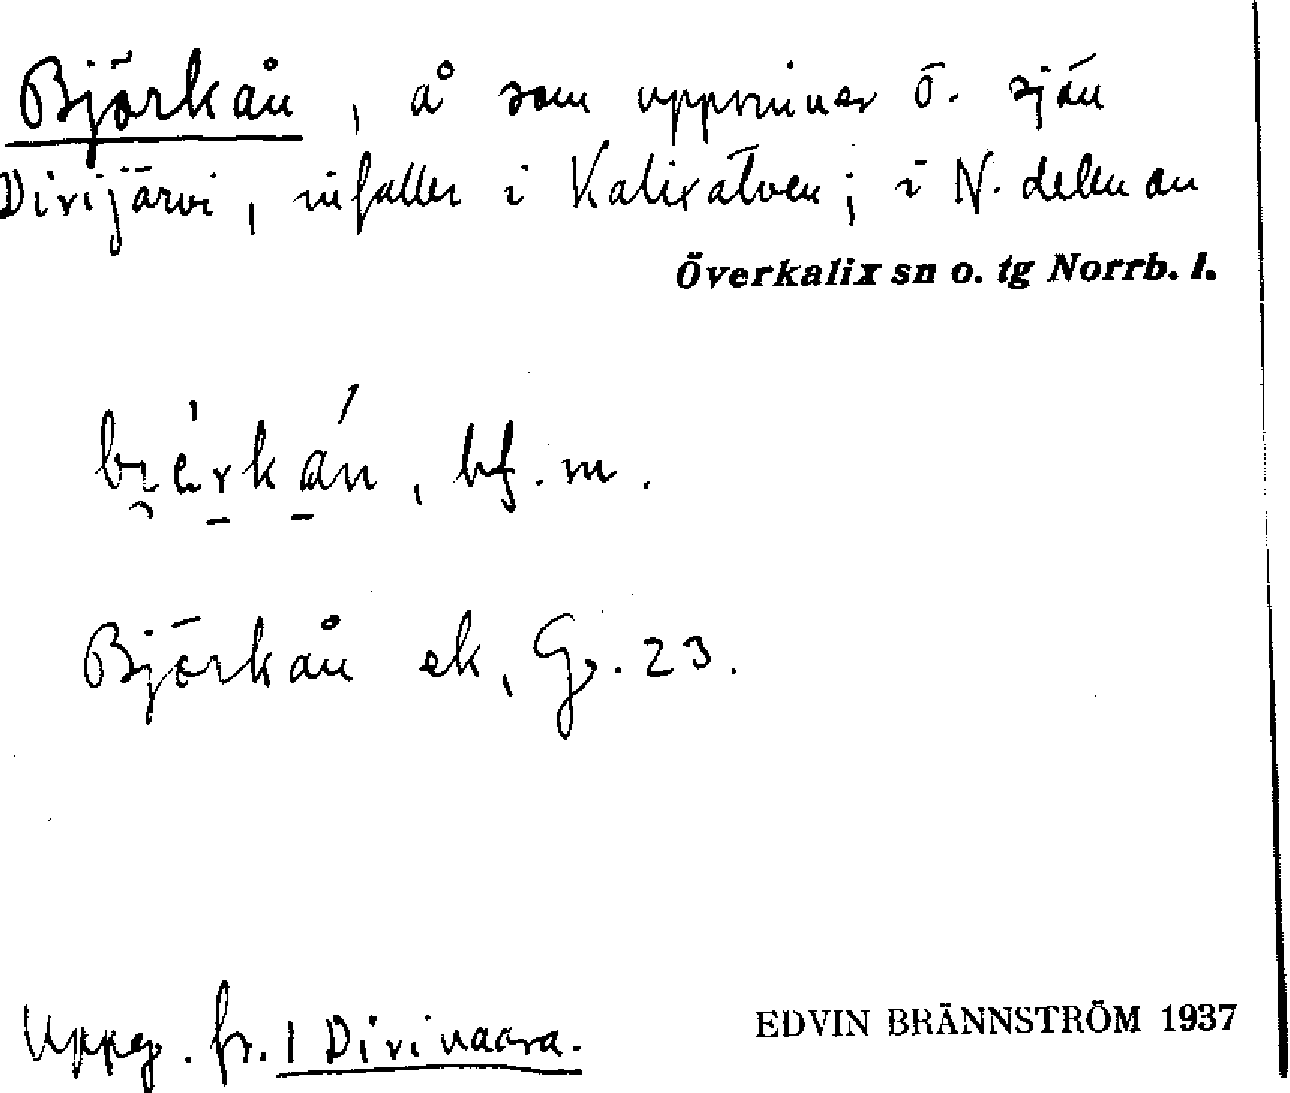 Björkån, å som upprinner ö. sjön
Divijärvi, infaller i Kalixälven; i N. delen av
Överkalix sn o. tg Norrb. l.
bf. m.
Björkån ek, Gs. 23.
Uppg. fr. 1 Divivaara.
EDVIN BRÄNNSTRÖM 1937